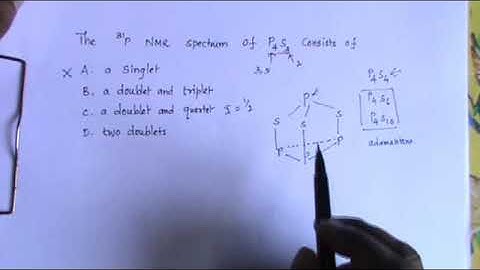 The ³¹P NMR spectrum of P₄S₃ consists of
3,5 2
X A. a singlet
B. a doublet and triplet
C. a doublet and quartet I = 1/2
D. two doublets
P₄S₄
P₄S₆
P₄S₁₀
adamantane
P
S S S
P P